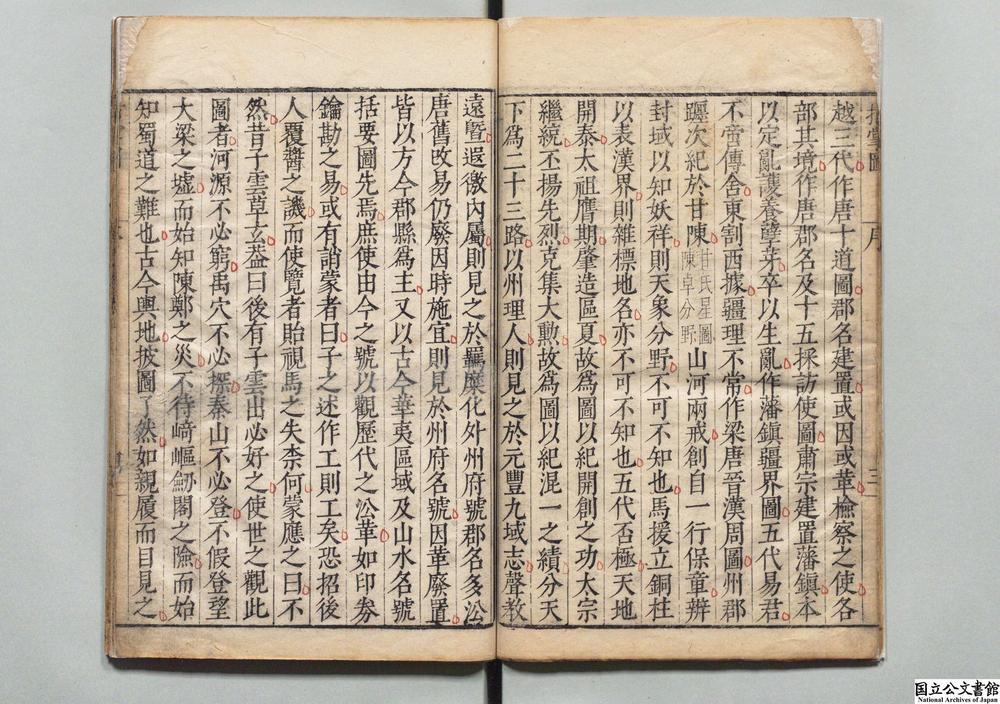 越三代作唐十道圖郡名建置或因或革檢察之使各
部其境作唐郡名及十五採訪使圖肅宗建置藩鎮本
以定亂護養孽芽卒以生亂作藩鎮疆界圖五代易君
不啻傳舍東割西據疆理不常作梁唐晉漢周圖州郡
躔次紀於甘陳甘氏星圖陳卓分野山河兩戒創自一行保章辨
封域以知妖祥則天象分野不可不知也馬援立銅柱
以表漢界則雜標地名亦不可不知也五代否極天地
開泰太祖膺期肇造區夏故爲圖以紀開創之功太宗
繼統丕揚先烈克集大勲故爲圖以紀混一之績分天
下爲二十三路以州理人則見之於元豐九域志聲教
遠曁遐徼內屬則見之於羈縻化外州府號郡名多㳂
唐舊改易仍廢因時施宜則見於州府名號因革廢置
皆以方今郡縣爲主又以古今華夷區域及山水名號
括要圖先焉庶使由今之號以觀歷代之㳂革如印券
鑰勘之易或有誚蒙者曰子之述作工則工矣恐招後
人覆醬之譏而使覽者貽視馬之失柰何蒙應之曰不
然昔子雲草玄葢曰後有子雲出必好之使世之觀此
圖者河源不必窮禹穴不必探秦山不必登不假登望
大梁之墟而始知陳鄭之災不待﨑嶇劒閣之險而始
知蜀道之難也古今輿地披圖了然如親履而目見之
序
三
国立公文書館
National Archives of Japan